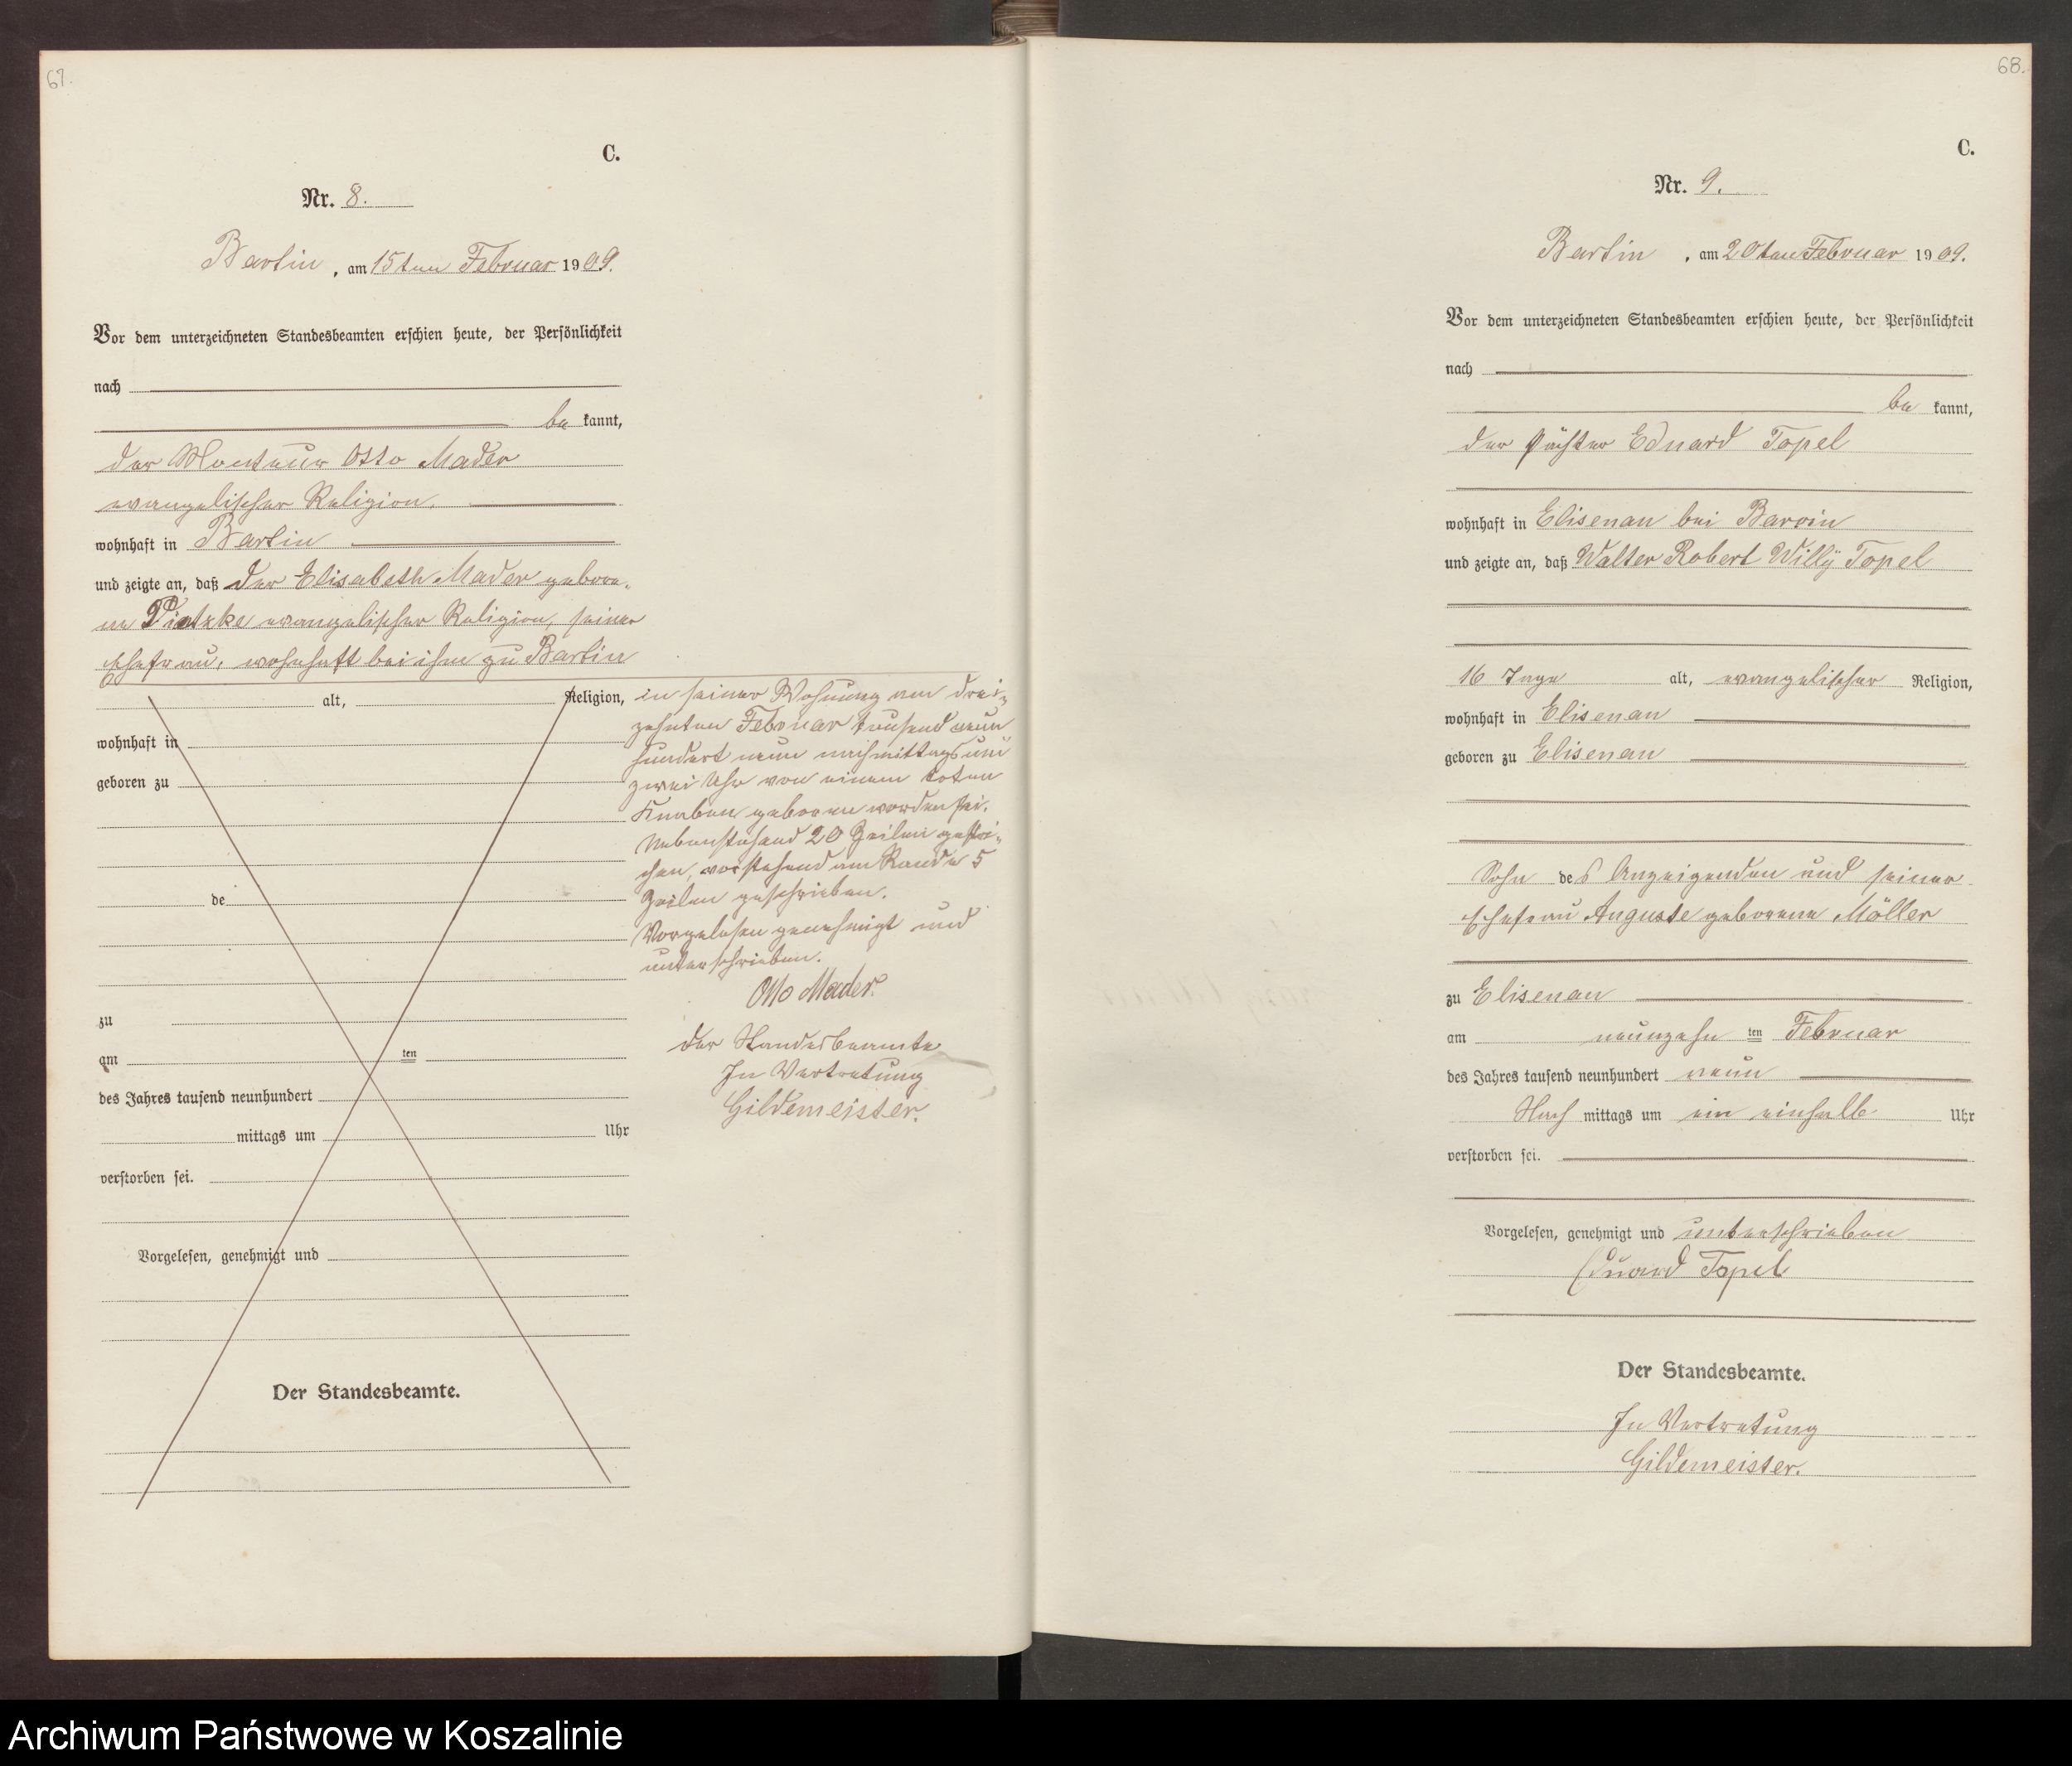 67.
C.
Nr. 8.
Bartin, am 15ten Februar 1909.
Vor dem unterzeichneten Standesbeamten erschien heute, der Persönlichkeit
nach
be kannt,
der Monteur Otto Mader
evangelischer Religion,
wohnhaft in Bartin
und zeigte an, daß der Elisabeth Mader gebore-
ne Pietzke evangelischer Religion, seiner
Ehefrau, wohnhaft bei ihm zu Bartin
alt, Religion,
wohnhaft in
geboren zu
de
zu
am ten
des Jahres tausend neunhundert
mittags um Uhr
verstorben sei.
Vorgelesen, genehmigt und
Der Standesbeamte.
in seiner Wohnung am drei-
zehnten Februar tausend neun
hundert neun nachmittags um
zwei Uhr von einem toten
Knaben geboren worden sei.
Nebenstehend 20 Zeilen gestri-
chen, vorstehend am Rande 5
Zeilen geschrieben.
Vorgelesen genehmigt und
unterschrieben.
Otto Mader.
Der Standesbeamte
In Vertretung
Gildemeister.
68.
C.
Nr. 9.
Bartin, am 20ten Februar 1909.
Vor dem unterzeichneten Standesbeamten erschien heute, der Persönlichkeit
nach
be kannt,
der Pächter Eduard Topel
wohnhaft in Elisenau bei Barvin
und zeigte an, daß Walter Robert Willÿ Topel
16 Tage alt, evangelischer Religion,
wohnhaft in Elisenau
geboren zu Elisenau
Sohn des Anzeigenden und seiner
Ehefrau Auguste geborene Möller
zu Elisenau
am neunzehn ten Februar
des Jahres tausend neunhundert neun
Nach mittags um ein einhalb Uhr
verstorben sei.
Vorgelesen, genehmigt und unterschrieben
Eduard Topel
Der Standesbeamte.
In Vertretung
Gildemeister.
Archiwum Państwowe w Koszalinie